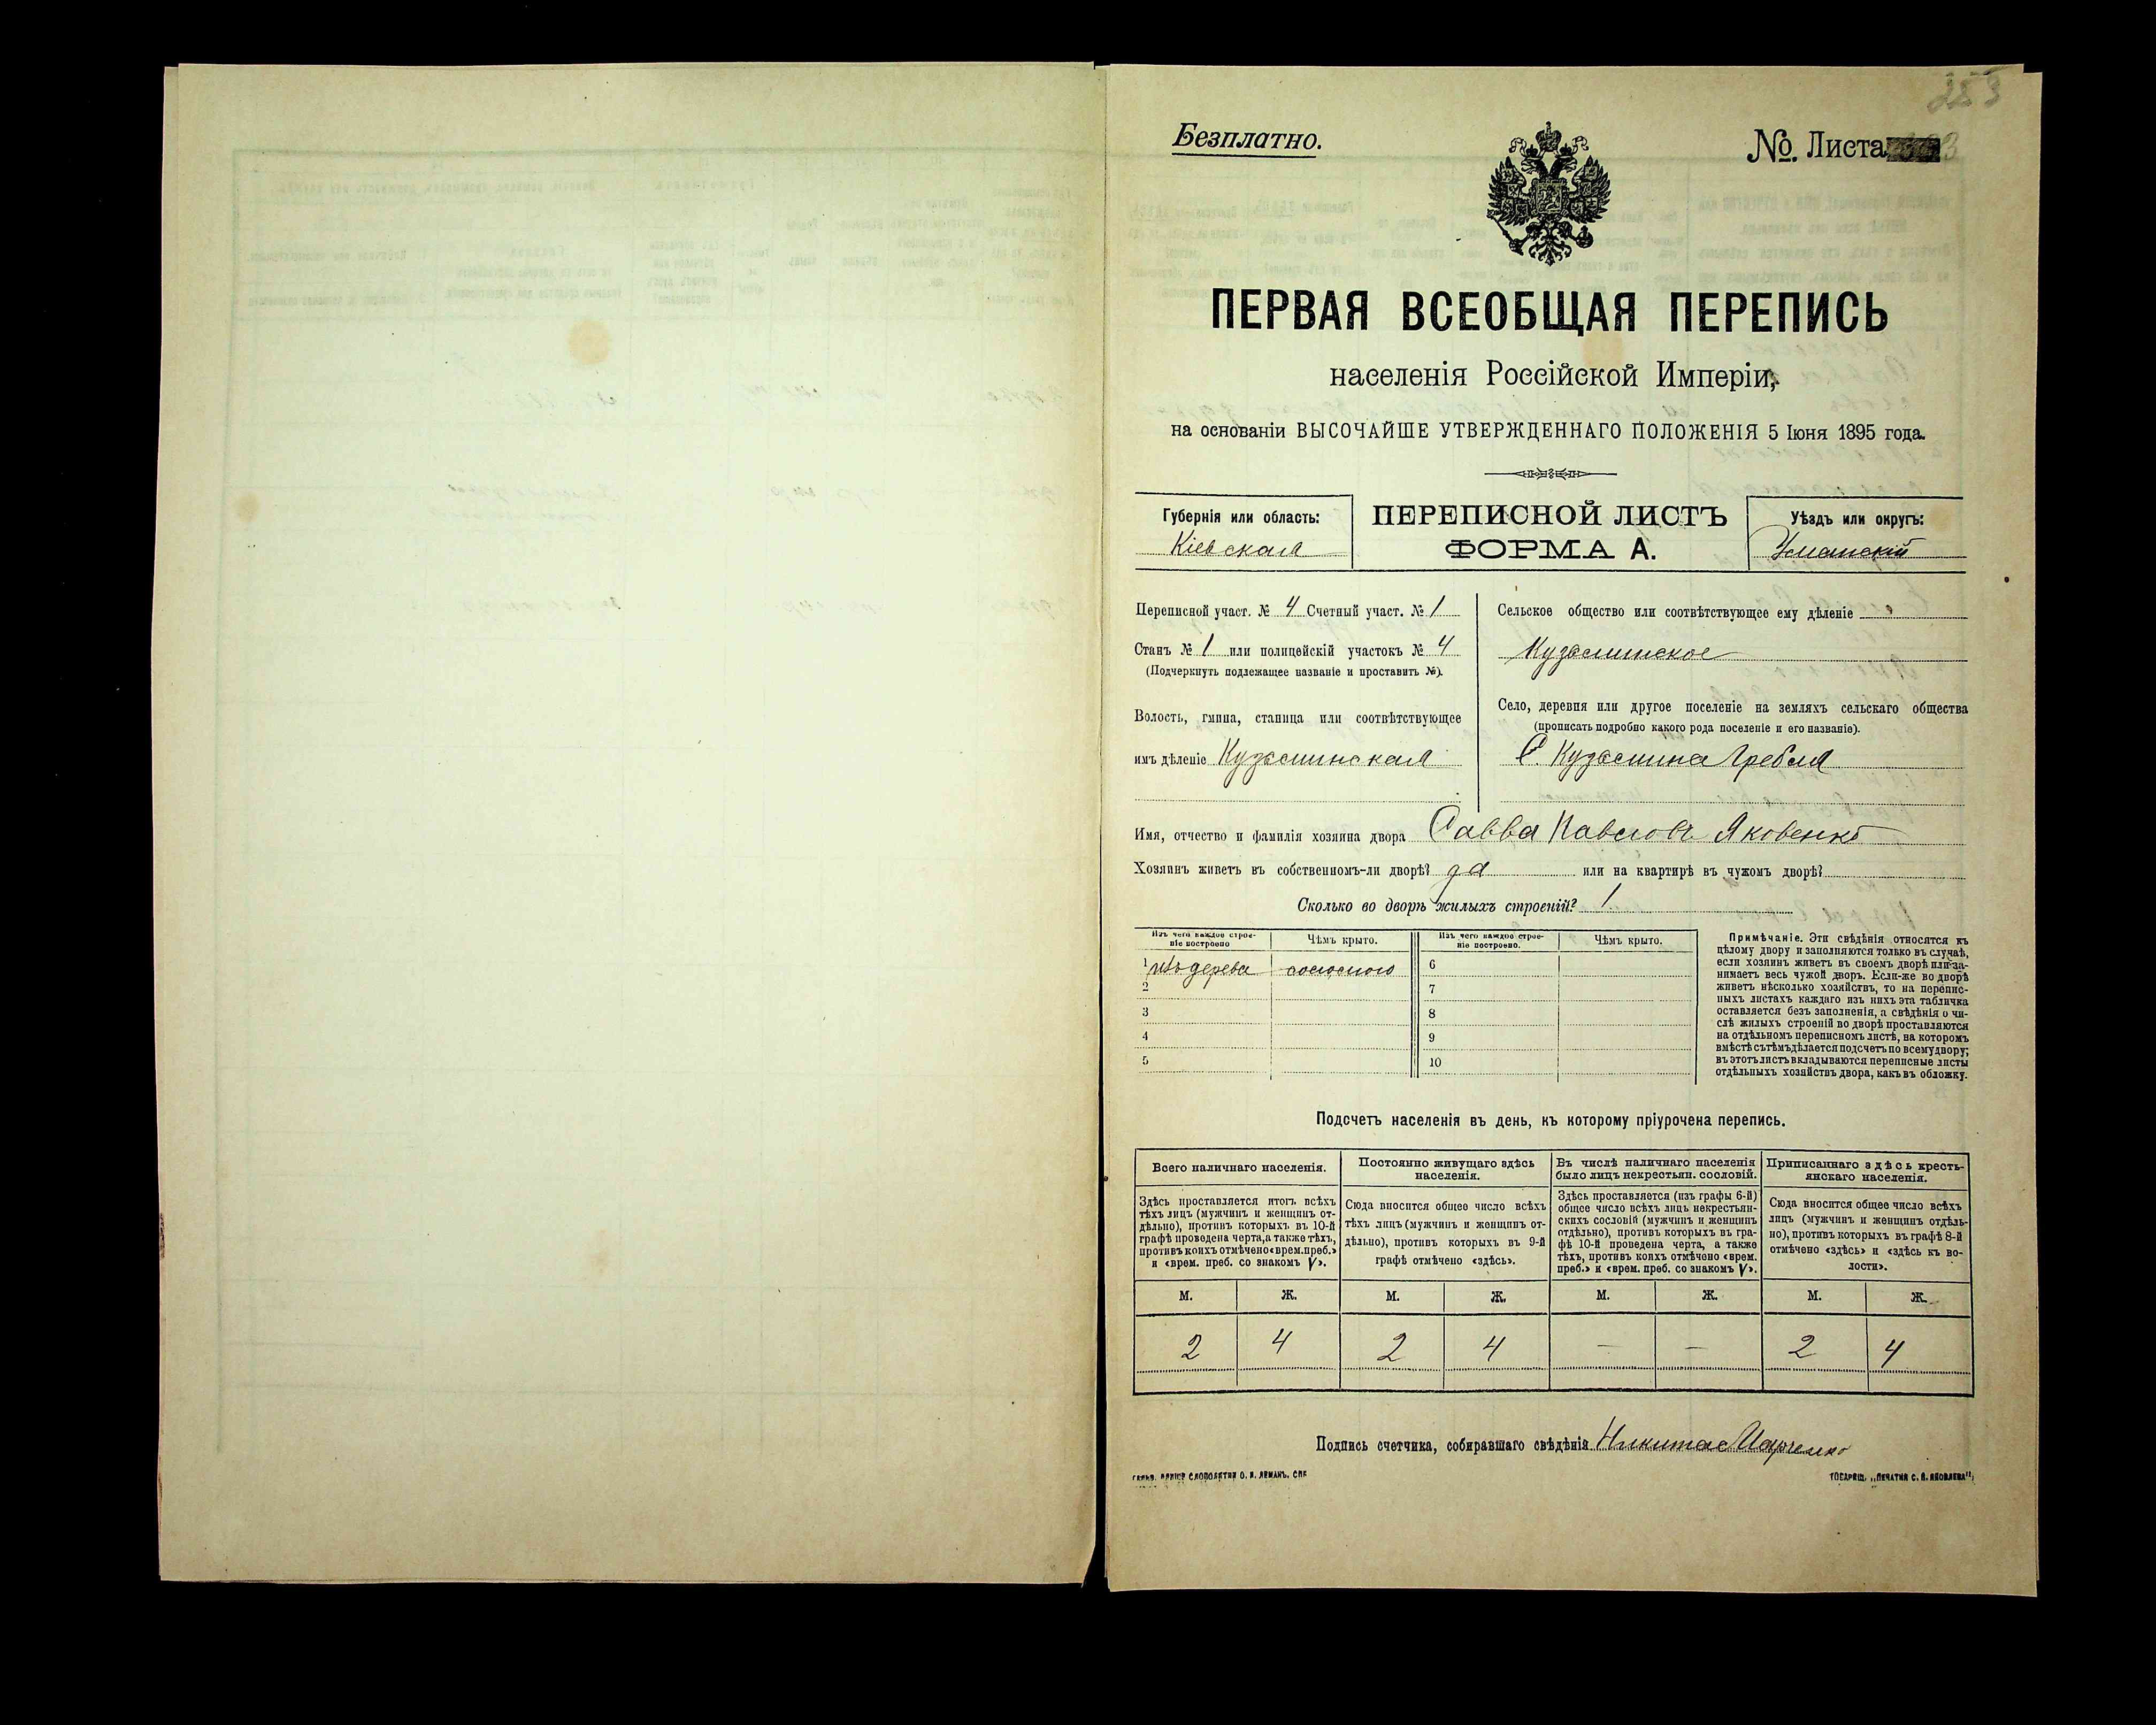 253
Безплатно.
№. Листа
ПЕРВАЯ ВСЕОБЩАЯ ПЕРЕПИСЬ
населенія Россійской Имперіи,
на основаніи ВЫСОЧАЙШЕ УТВЕРЖДЕННАГО ПОЛОЖЕНІЯ 5 Іюня 1895 года.
Губернія или область:
Кіевская
ПЕРЕПИСНОЙ ЛИСТЪ
ФОРМА А.
Уѣздъ или округъ:
Уманскій
Переписной участ. № 4 Счетный участ. № 1
Станъ № 1 или полицейскій участокъ № 4
(Подчеркнуть подлежащее названіе и проставить №).
Волость, гмина, станица или соотвѣтствующее
имъ дѣленіе Кузьминская
Сельское общество или соотвѣтствующее ему дѣленіе
Кузьминское
Село, деревня или другое поселеніе на земляхъ сельскаго общества
(прописать подробно какого рода поселеніе и его названіе).
С. Кузьмина Гребля
Имя, отчество и фамилія хозяина двора Савва Павловъ Яковенко
Хозяинъ живетъ въ собственномъ-ли дворѣ? да или на квартирѣ въ чужомъ дворѣ?
Сколько во дворѣ жилыхъ строеній? 1
Изъ чего каждое строеніе построено
Чѣмъ крыто.
Изъ чего каждое строеніе построено.
Чѣмъ крыто.
1 изъ дерева соломою 6
2 7
3 8
4 9
5 10
Примѣчаніе. Эти свѣдѣнія относятся къ
цѣлому двору и заполняются только въ случаѣ,
если хозяинъ живетъ въ своемъ дворѣ или за-
нимаетъ весь чужой дворъ. Если-же во дворѣ
живетъ нѣсколько хозяйствъ, то на перепис-
ныхъ листахъ каждаго изъ нихъ эта табличка
оставляется безъ заполненія, а свѣдѣнія о чи-
слѣ жилыхъ строеній во дворѣ проставляются
на отдѣльномъ переписномъ листѣ, на которомъ
вмѣстѣ съ тѣмъ дѣлается подсчетъ по всему двору;
въ этотъ листъ вкладываются переписные листы
отдѣльныхъ хозяйствъ двора, какъ въ обложку.
Подсчетъ населенія въ день, къ которому пріурочена перепись.
Всего наличнаго населенія.
Здѣсь проставляется итогъ всѣхъ
тѣхъ лицъ (мужчинъ и женщинъ от-
дѣльно), противъ которыхъ въ 10-й
графѣ проведена черта, а также тѣхъ,
противъ коихъ отмѣчено «врем. преб.»
и «врем. преб. со знакомъ V».
Постоянно живущаго здѣсь
населенія.
Сюда вносится общее число всѣхъ
тѣхъ лицъ (мужчинъ и женщинъ от-
дѣльно), противъ которыхъ въ 9-й
графѣ отмѣчено «здѣсь».
Въ числѣ наличнаго населенія
было лицъ некрестьян. сословій.
Здѣсь проставляется (изъ графы 6-й)
общее число всѣхъ лицъ некрестьян-
скихъ сословій (мужчинъ и женщинъ
отдѣльно), противъ которыхъ въ гра-
фѣ 10-й проведена черта, а также
тѣхъ, противъ коихъ отмѣчено «врем.
преб.» и «врем. преб. со знакомъ V».
Приписаннаго здѣсь кресть-
янскаго населенія.
Сюда вносится общее число всѣхъ
лицъ (мужчинъ и женщинъ отдѣль-
но), противъ которыхъ въ графѣ 8-й
отмѣчено «здѣсь» и «здѣсь къ во-
лости».
М. Ж. М. Ж. М. Ж. М. Ж.
2 4 2 4 — — 2 4
Подпись счетчика, собиравшаго свѣдѣнія Никита
СЛОВОЛИТНИ О. И. ЛЕМАНЪ, СПБ
ТОВАРИЩ. „ПЕЧАТНЯ С. П. ЯКОВЛЕВА"